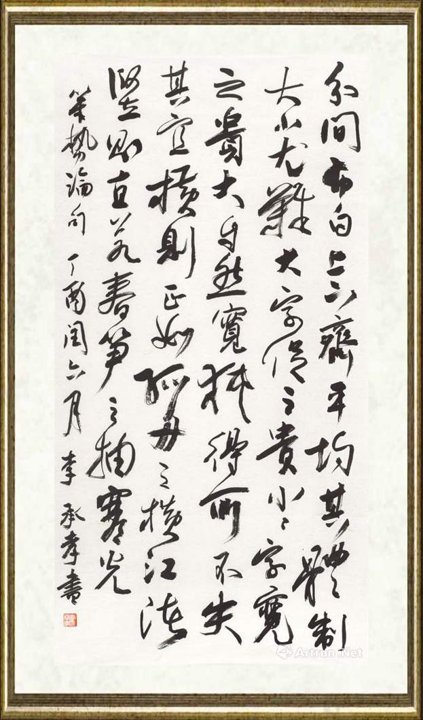 分間布白上下齊平均其體制
大小尤難大字促之貴小々字寬
之貴大自然寬狹得所不失
其宜横則正如孤舟之横江渚
竪則直若春笋之抽寒谷
筆勢論句丁酉閏六月李承孝書
Artron.Net